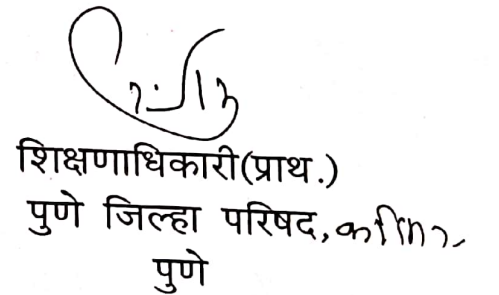 शिक्षणाधिकारी(प्राथ.)
पुणे जिल्हा परिषद,
पुणे